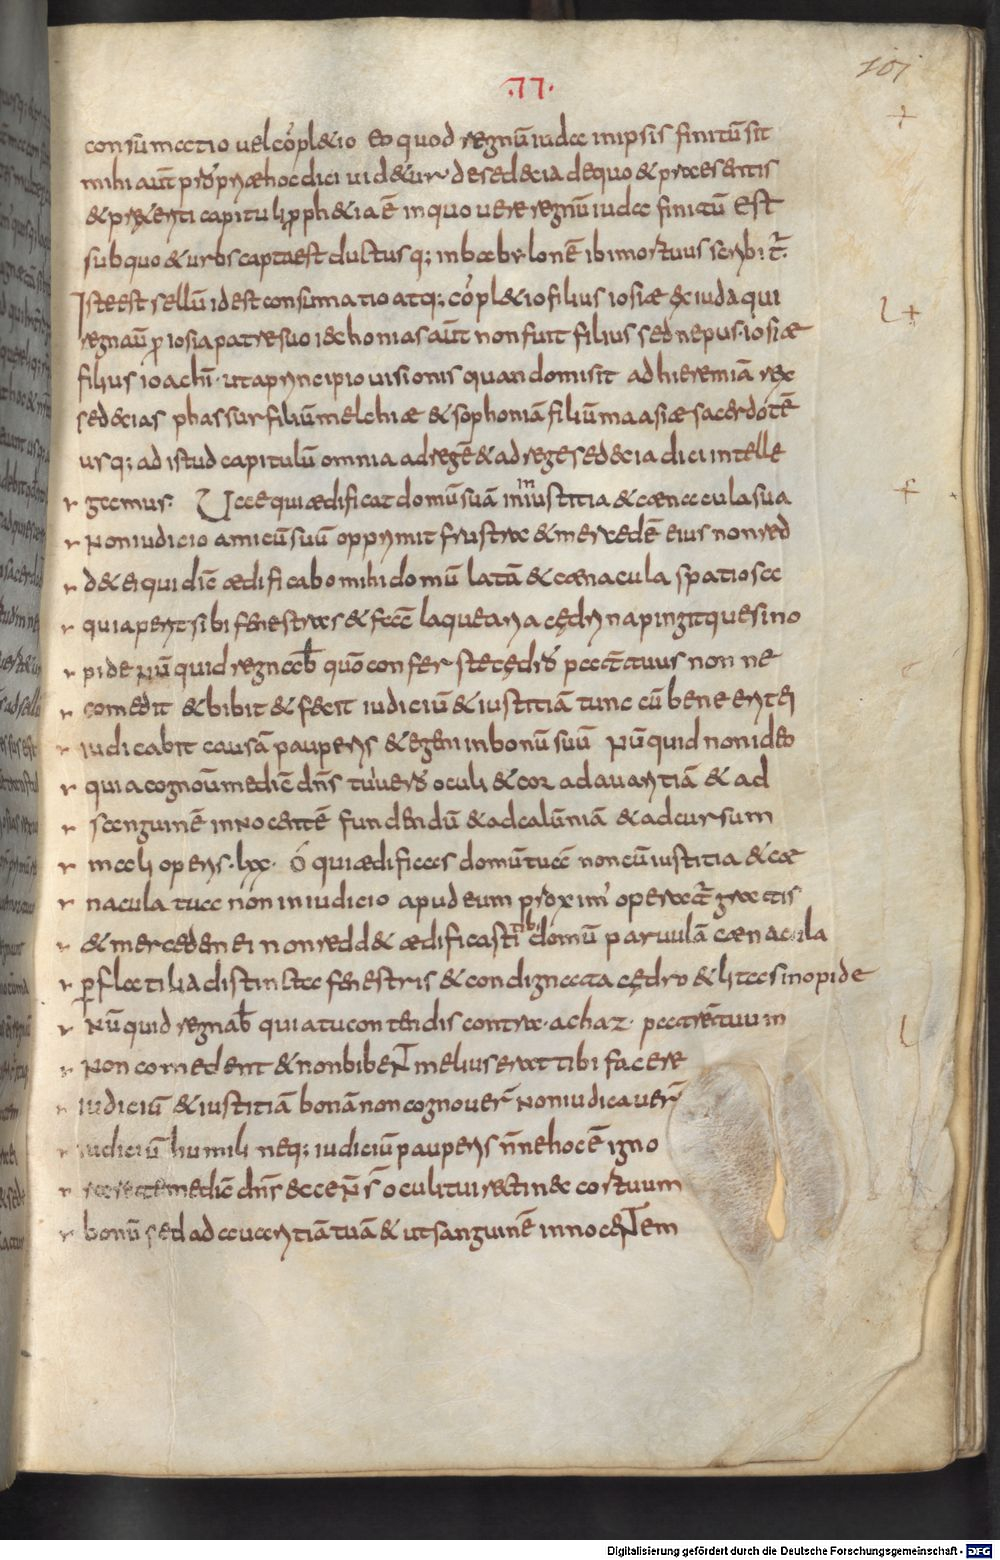 101
.77.
consummatio uel cõpl&io eo quod regnũ iudae in ipsis finitũ sit
mihi aut̃ pro pryæ hoc dici uid&ur de sed&cia de quo & præsentis
& præ&enti capituli pph&ia ẽ in quo uere regnũ iudae finitũ est
sub quo & urbs capta est ductusq; in babylonẽ ibi mortuus scribit̃.
Iste est sellũ id est consumatio atq; cõpl&io filius iosiæ & iuda qui
regnau̅ p iosia patre suo iechonias aut̃ non fuit filius sed nepus iosiæ
filius ioachĩ ut a principio uisionis quando misit ad hieremiã rex
sed&cias phassur filiũ melchiæ & sophoniã filiũ maasiæ sacerdotẽ
usq; ad istud capitulũ omnia ad regẽ & ad rege sed&cia dici intelle
gamus. Uae qui ædificat domũ suã in iniustitia & cænacula sua
Non iudicio amicũ suũ opprimit frustra & mercedẽ eius non red
d& ei qui dic̃ ædificabo mihi domũ latã & cænacula spatiosa
qui aperit sibi fenestras & facc̃ laquearya cędryna pingitque sino
pide nũquid regnab̃ quõ confer s te cędro pat̃ tuus non ne
comedit & bibit & fecit iudiciũ & iustitiã tunc cũ bene erat ei
iudicabit causã pauperis & egeni in bonũ suũ nũquid non ideo
quia cognou̅ me dic̃ dñs tui uero oculi & cor ad auaritiã & ad
sanguinẽ innocentẽ fundendũ & ad calũniã & ad cursum
mali operis. lxx. õ qui ædificas domũ tuã non cũ iustitia & cæ
nacula tua non in iudicio apud eum proximi operat̃ gratis
& mercedem ei non redd& ædificasti tibi domũ paruulã cænacula
pflatilia distincta fenestris & condignata cędro & lita sinopide
Nũquid regnab̃ quia tu contendis contra achaz patrẽ tuum
Non comedent & non bibeNT melius erat tibi facere
iudiciũ & iustitiã bonã non cognouer̃ Non iudicauer̃
iudiciũ humili neq; iudiciũ pauperis ñne hoc ẽ igno
rare me dic̃ dñs ecce Ñ s̃ oculi tui rectinec cor tuum
bonũ sed ad auaritiã tuã & ut sanguinẽ innoceNTem
Digitalisierung gefördert durch die Deutsche Forschungsgemeinschaft - DFG